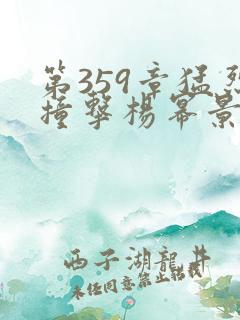 第359章猛烈
撞撃楊幂景
西子湖龍井
未任同意禁止轉載